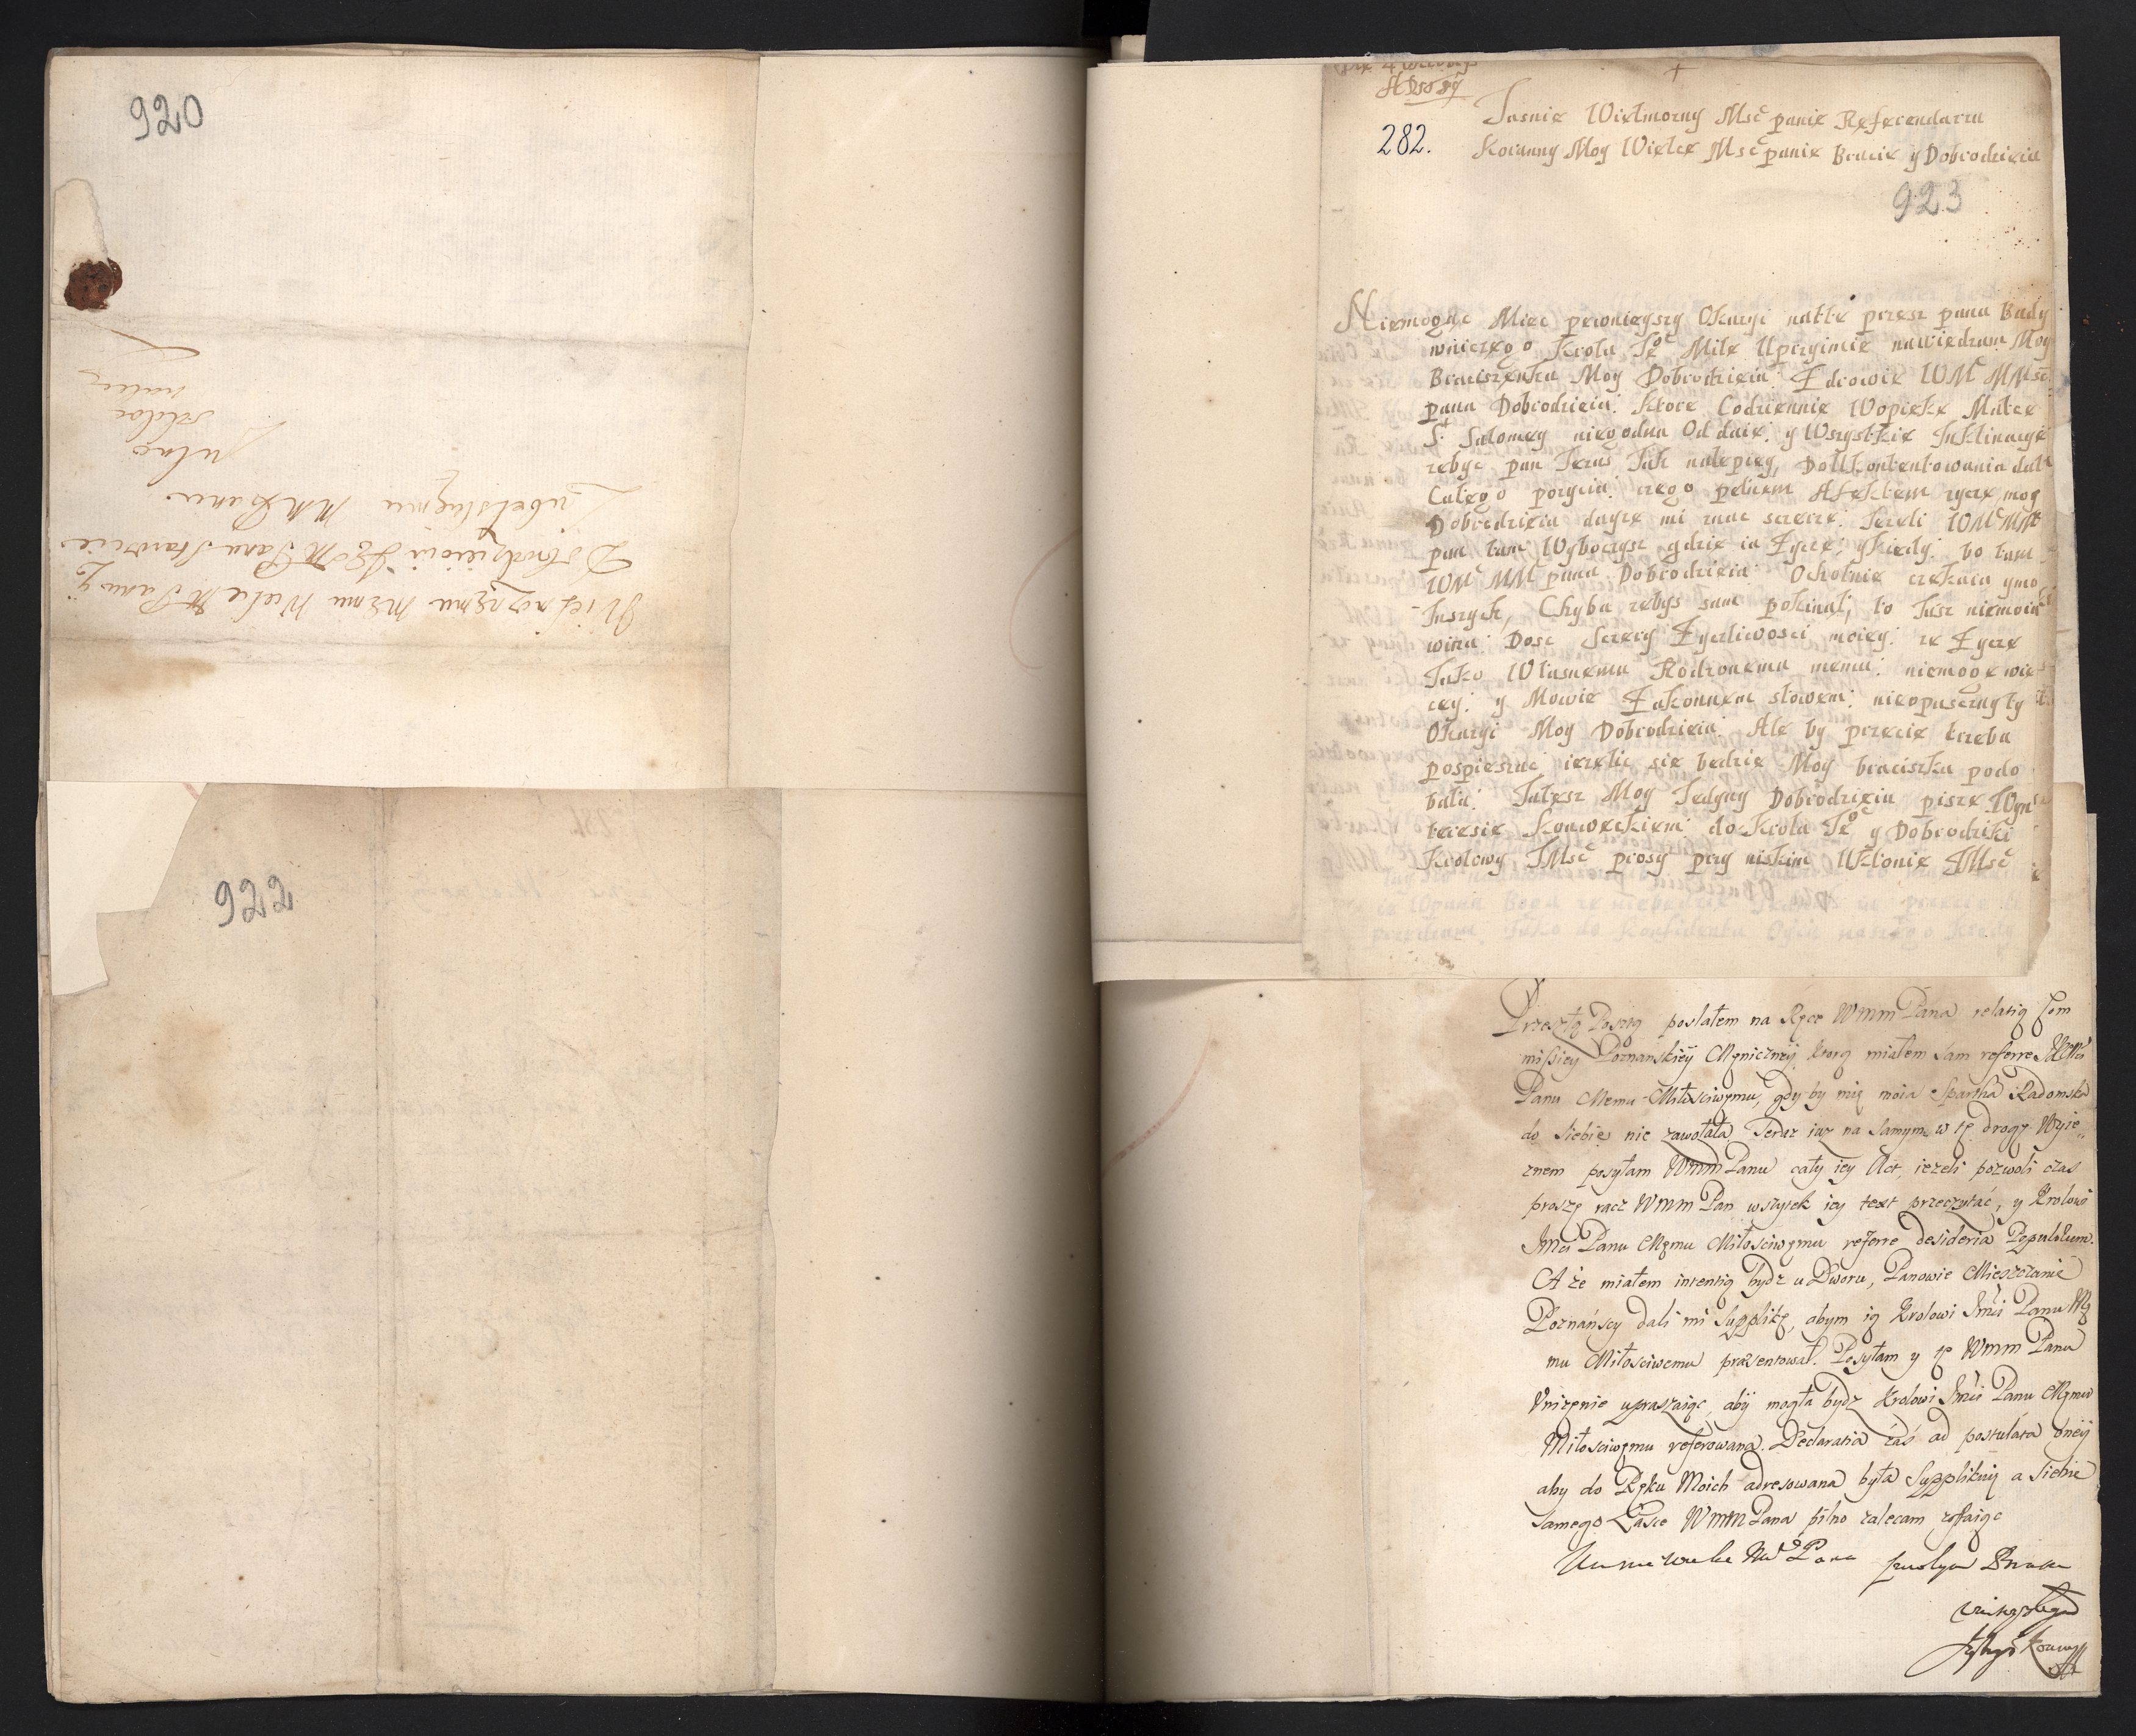 920
Wielmoznemu Memu Wielce M Panu y
Dobrodzieiowi JE M Panu Staroscie
MM Pana
922
282.
Jasnie Wielmozny Msc panie Referendarzu
Koronny Moy Wielce Msc panie Bracie y Dobrodzieiu
923
Niemogąc Miec pewnieyszy Okazyi natte przesz pana Budo
wniczego Krola Je Mile Uprzyimie nawiedzam Moy
Braciszenku Moy Dobrodzieiu Zdrowie WMc MMsc
pana Dobrodzieia: ktore Codziennie Wopieke Matce
S. Salomey niegodna Oddaie: y Wszystkie Inklinacye
zebyc pan Jezus Jak nalepiey, Do Ukontentowania dal
Całego pozycia: czego pełnem Afektem zycze moy
Dobrodzieiu dayze mi znac szczerze: Jezeli WMc MM
pan tam Wyboczysz gdzie ia Zycze, y kiedy: bo tam
WMc MMc pana Dobrodzieia Ochotnie czekaia ymo
Inszych, Chyba zebys sam pokinał, to Jusz niemoia
wina: Dosc Szczery Zyczliwosci moiey: ze Zycze
Jako Własnemu Rodzonemu memu: niemoge wie
cey: y Mowie Zakonnem słowem: nieopuszczay ty
Okazyi Moy Dobrodzieiu Ale by przecie trzeba
pospieszac iezelic sie bedzie Moy braciszku podo
bała: Tałesz Moy Jedyny Dobrodzieiu pisze Wyn
teresie Konweckiem: do Krola Je y Dobrodziki
Krolowy JMsc prosy przy niskim Ukłonie JMsc
Przeszłą Posztą posłałem na Ręce WMM Pana relatią Com
missiey Poznanskiey Męniczney, ktorą miałem sam referre JKMci
Panu Memu Miłosciwemu, gdy by mię moia Spartha Radomska
do siebie nie zawołała. Teraz iuz na samym w tę drogę Wyie„
znem posyłam WMM Panu cały iey Act, iezeli pozwoli czas
proszę racz WMM Pan wszysek iey text przeczytać, y Krolowi
Jmci Panu Męmu Miłosciwęmu referre desideria Populorum.
A że miałem intentią bydz u Dworu, Panowie Mieszczanie
Poznańscy dali mi Supplikę, abym ią Krolowi Jmci Panu Mę
mu Miłosciwemu prazentował. Posyłam y tę WMM Panu
Uniżenie upraszaiąc, aby mogła bydz Krolowi Jmci Panu Męmu
Miłosciwęmu referowana. Declaratia zaś ad postulata oneij
aby do Ręku Moich adresowana była Supplikuię a siebie
samego Łasce WMM Pana pilno zalecam zostaiąc
Pana